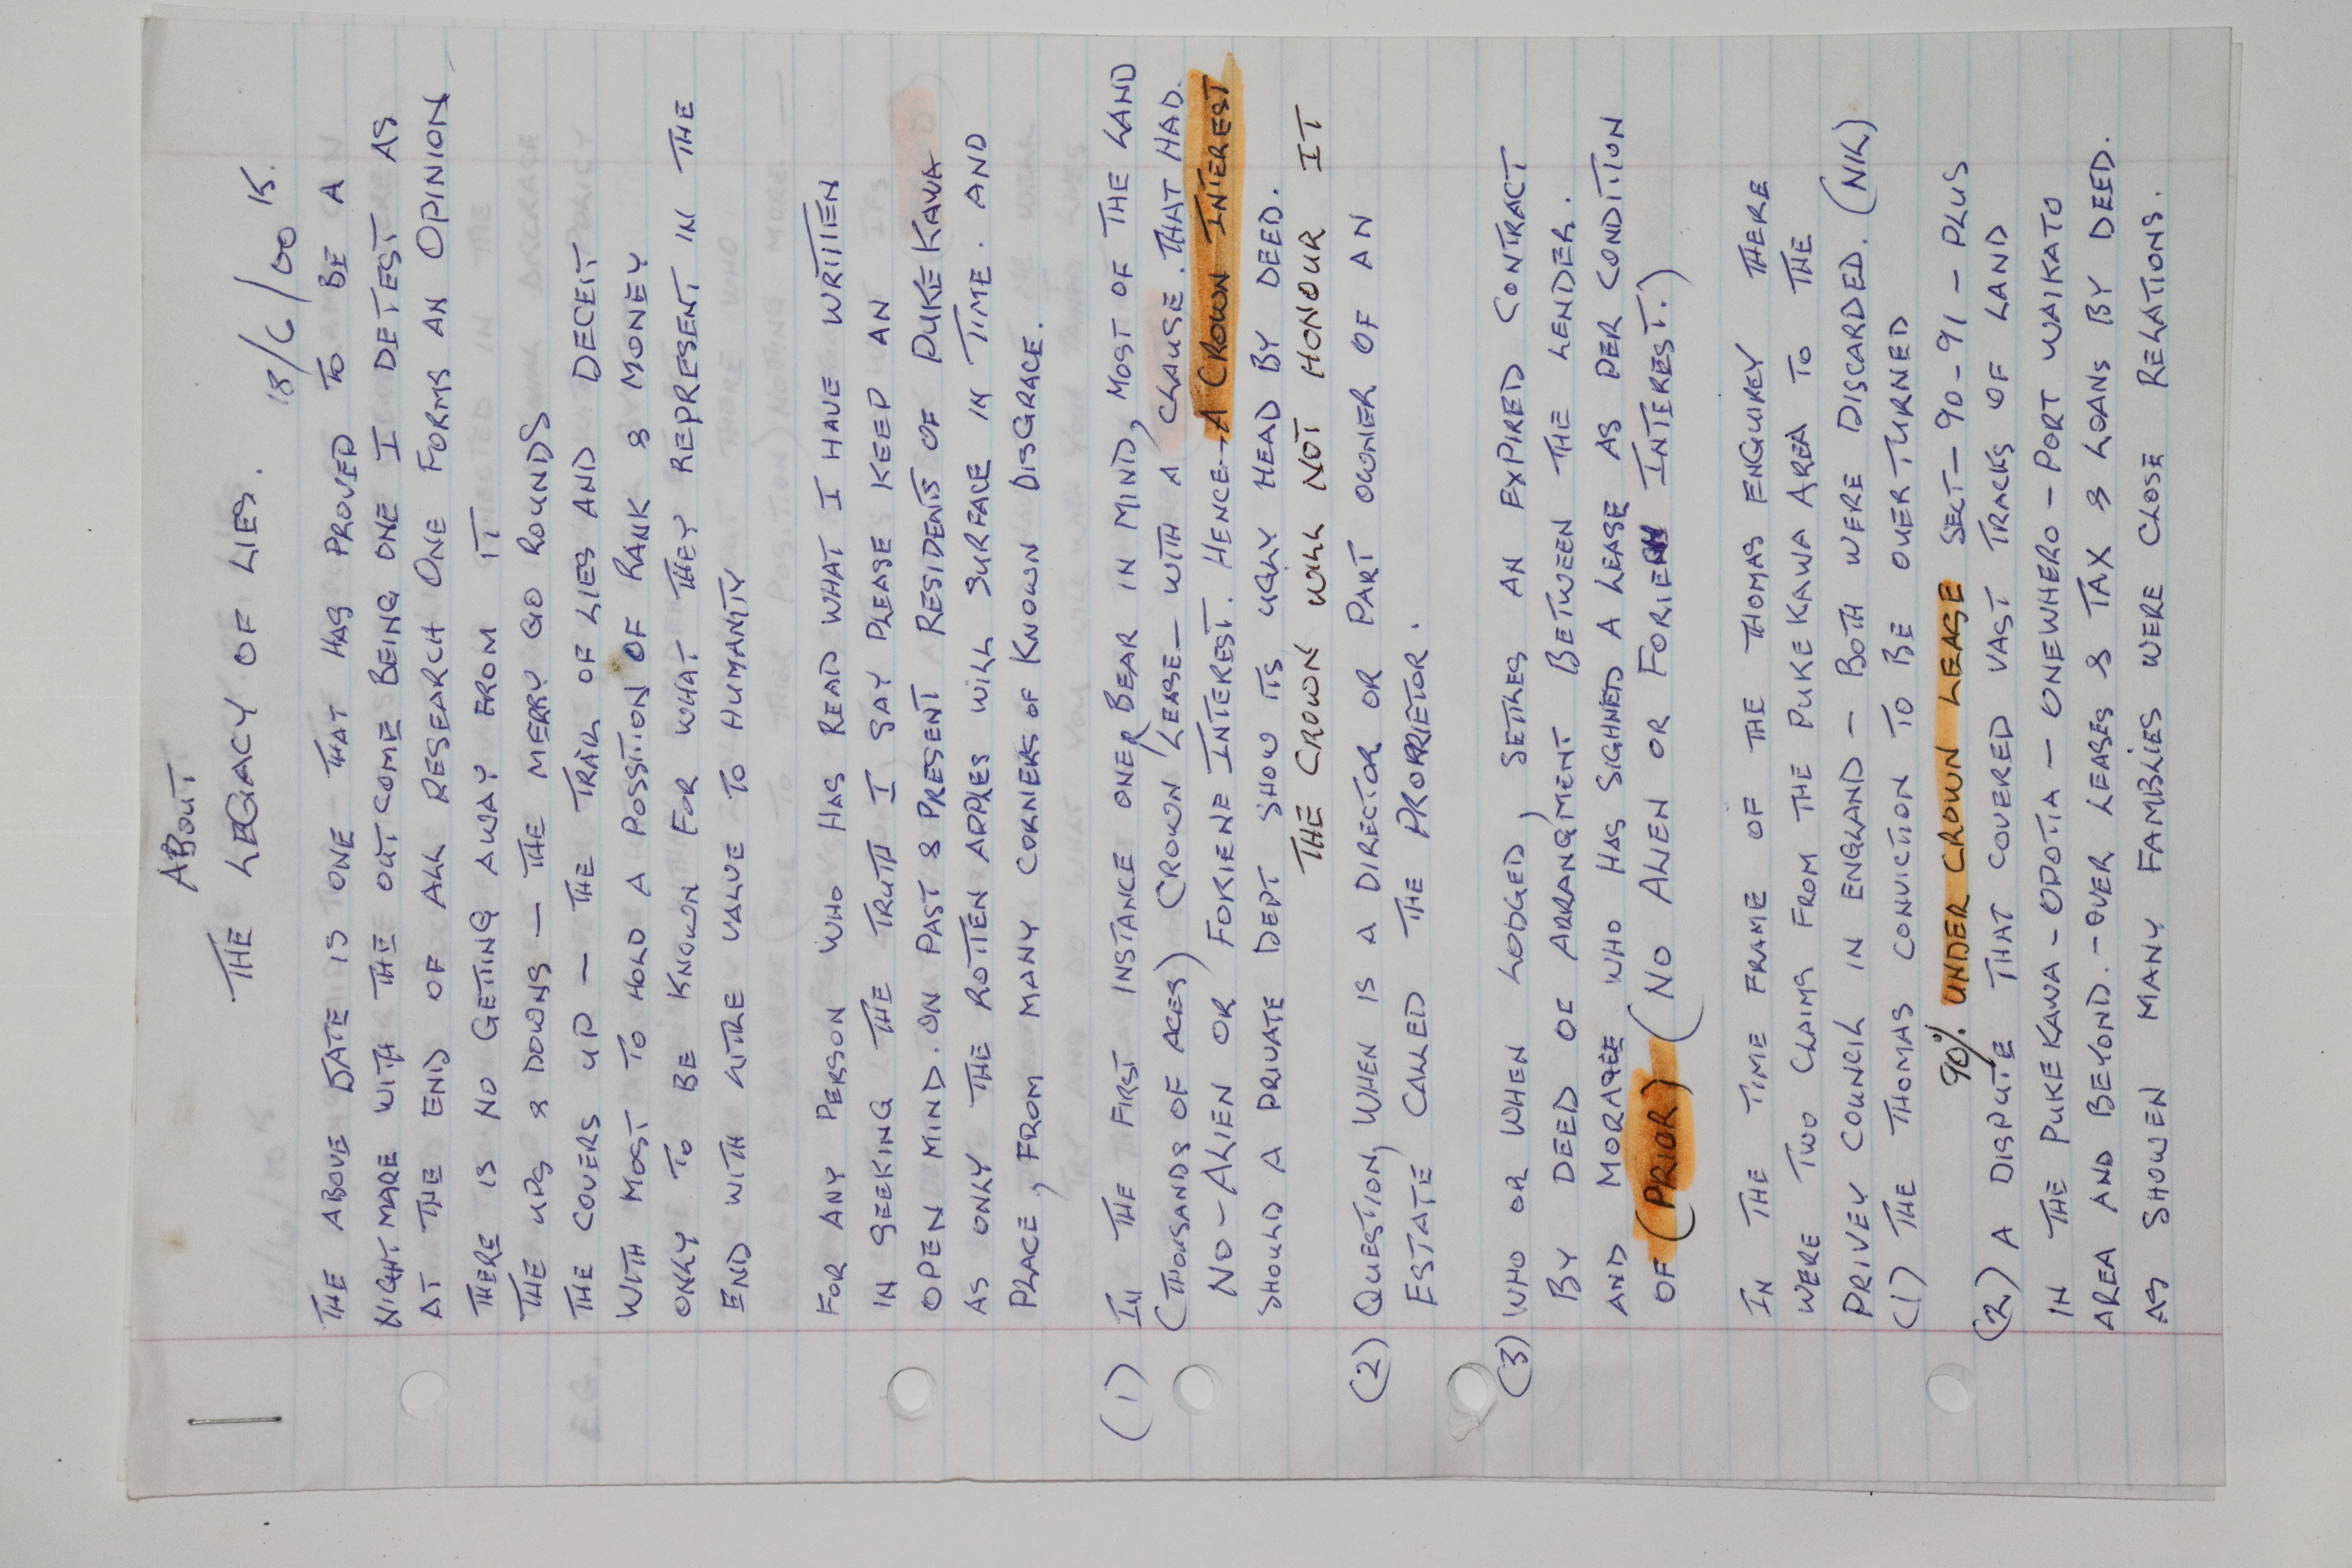 ABOUT
THE LEGACY OF LIES. 18/6/00 K.
THE ABOVE DATE IS ONE - THAT HAS PROVED TO BE A
NIGHTMARE WITH THE OUTCOME BEING ONE I DETEST AS
AT THE END OF ALL RESEARCH ONE FORMS AN OPINION
THERE IS NO GETING AWAY FROM IT
THE UPS & DOWNS - THE MERRY GO ROUNDS
THE COVERS UP - THE TRAIL OF LIES AND DECEIT
WITH MOST TO HOLD A POSSTION OF RANK & MONEY
ONLY TO BE KNOWN FOR WHAT THEY REPRESENT IN THE
END WITH LITRE VALUE TO HUMANITY
FOR ANY PERSON WHO HAS READ WHAT I HAVE WRITTEN
IN SEEKING THE TRUTH I SAY PLEASE KEEP AN
OPEN MIND. ON PAST & PRESENT RESIDENTS OF PUKEKAWA
AS ONLY THE ROTTEN APPLES WILL SURFACE IN TIME. AND
PLACE, FROM MANY CORNERS OF KNOWN DISGRACE.
(1) IN THE FIRST INSTANCE ONE BEAR IN MIND, MOST OF THE LAND
(THOUSANDS OF ACES) CROWN LEASE - WITH A CLAUSE. THAT HAD.
NO - ALIEN OR FORIENE INTEREST. HENCE - A CROWN INTEREST
SHOULD A PRIVATE DEPT SHOW ITS UGLY HEAD BY DEED.
THE CROWN WILL NOT HONOUR IT
(2) QUESTION, WHEN IS A DIRECTOR OR PART OWNER OF AN
ESTATE CALLED THE PROPRIETOR.
(3) WHO OR WHEN LODGED, SETLES AN EXPIRED CONTRACT
BY DEED OF ARRANGMENT BETWEEN THE LENDER.
AND MORAGEE WHO HAS SIGHNED A LEASE AS PER CONDITION
OF (PRIOR) (NO ALIEN OR FORIEN INTEREST.)
IN THE TIME FRAME OF THE THOMAS ENQUIREY THERE
WERE TWO CLAIMS FROM THE PUKEKAWA AREA TO THE
PRIVEY COUNRIL IN ENGLAND - BOTH WERE DISCARDED. (NIL)
(1) THE THOMAS CONVICTION TO BE OVERTURNED
90% UNDER CROWN LEASE SECT - 90 - 91 - PLUS
(2) A DISPUTE THAT COVERED VAST TRACKS OF LAND
IN THE PUKEKAWA - OPOTIA - ONEWHERO - PORT WAIKATO
AREA AND BEYOND. - OVER LEASES & TAX & LOANS BY DEED.
AS SHOWEN MANY FAMBLIES WERE CLOSE RELATIONS.